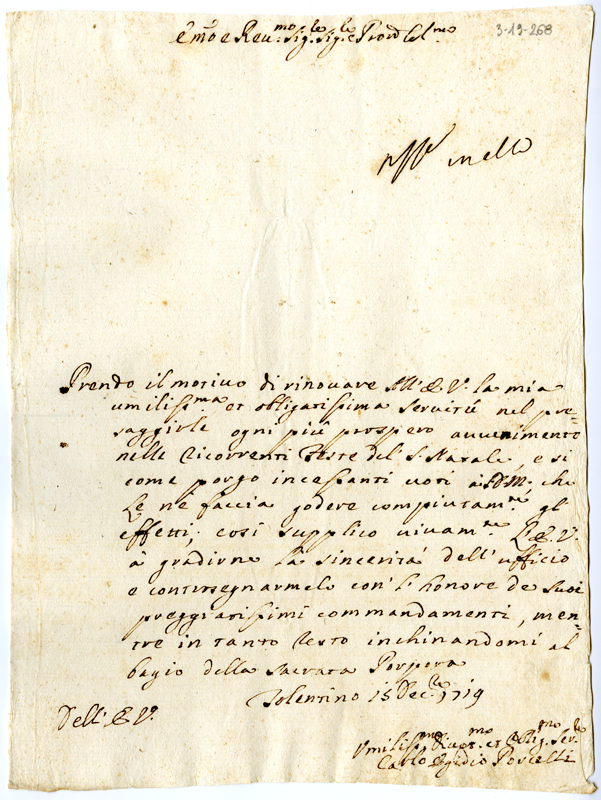 3-13-268
E.mo e Reu.mo Sig.re Sig.re e Pron Col.mo
Prendo il motiuo di rinouare All'E.V. la mia
umilissi.ma et obligatissima seruitù nel pre=
saggirle ogni più prospero auuenimento
nelle Ricorrenti Feste del S. Natale, e si
come porgo incessanti uoti à S.D.M. che
Le ne faccia godere compiutam.te gl
effetti; così supplico uiuam.te L'E.V.
à gradirne la sincerità dell'ufficio
e contrsegnarmelo con l'honore de suoi
preggiatissimi commandamenti, men=
tre in tanto resto inchinandomi al
bagio della Sacrata Porpora
Tolentino 15 Dec.re 1719
Dell'E.V.
Vmiliss.mo Diuot.mo et Oblig.mo Ser.re
Carlo Egidio Porcelli